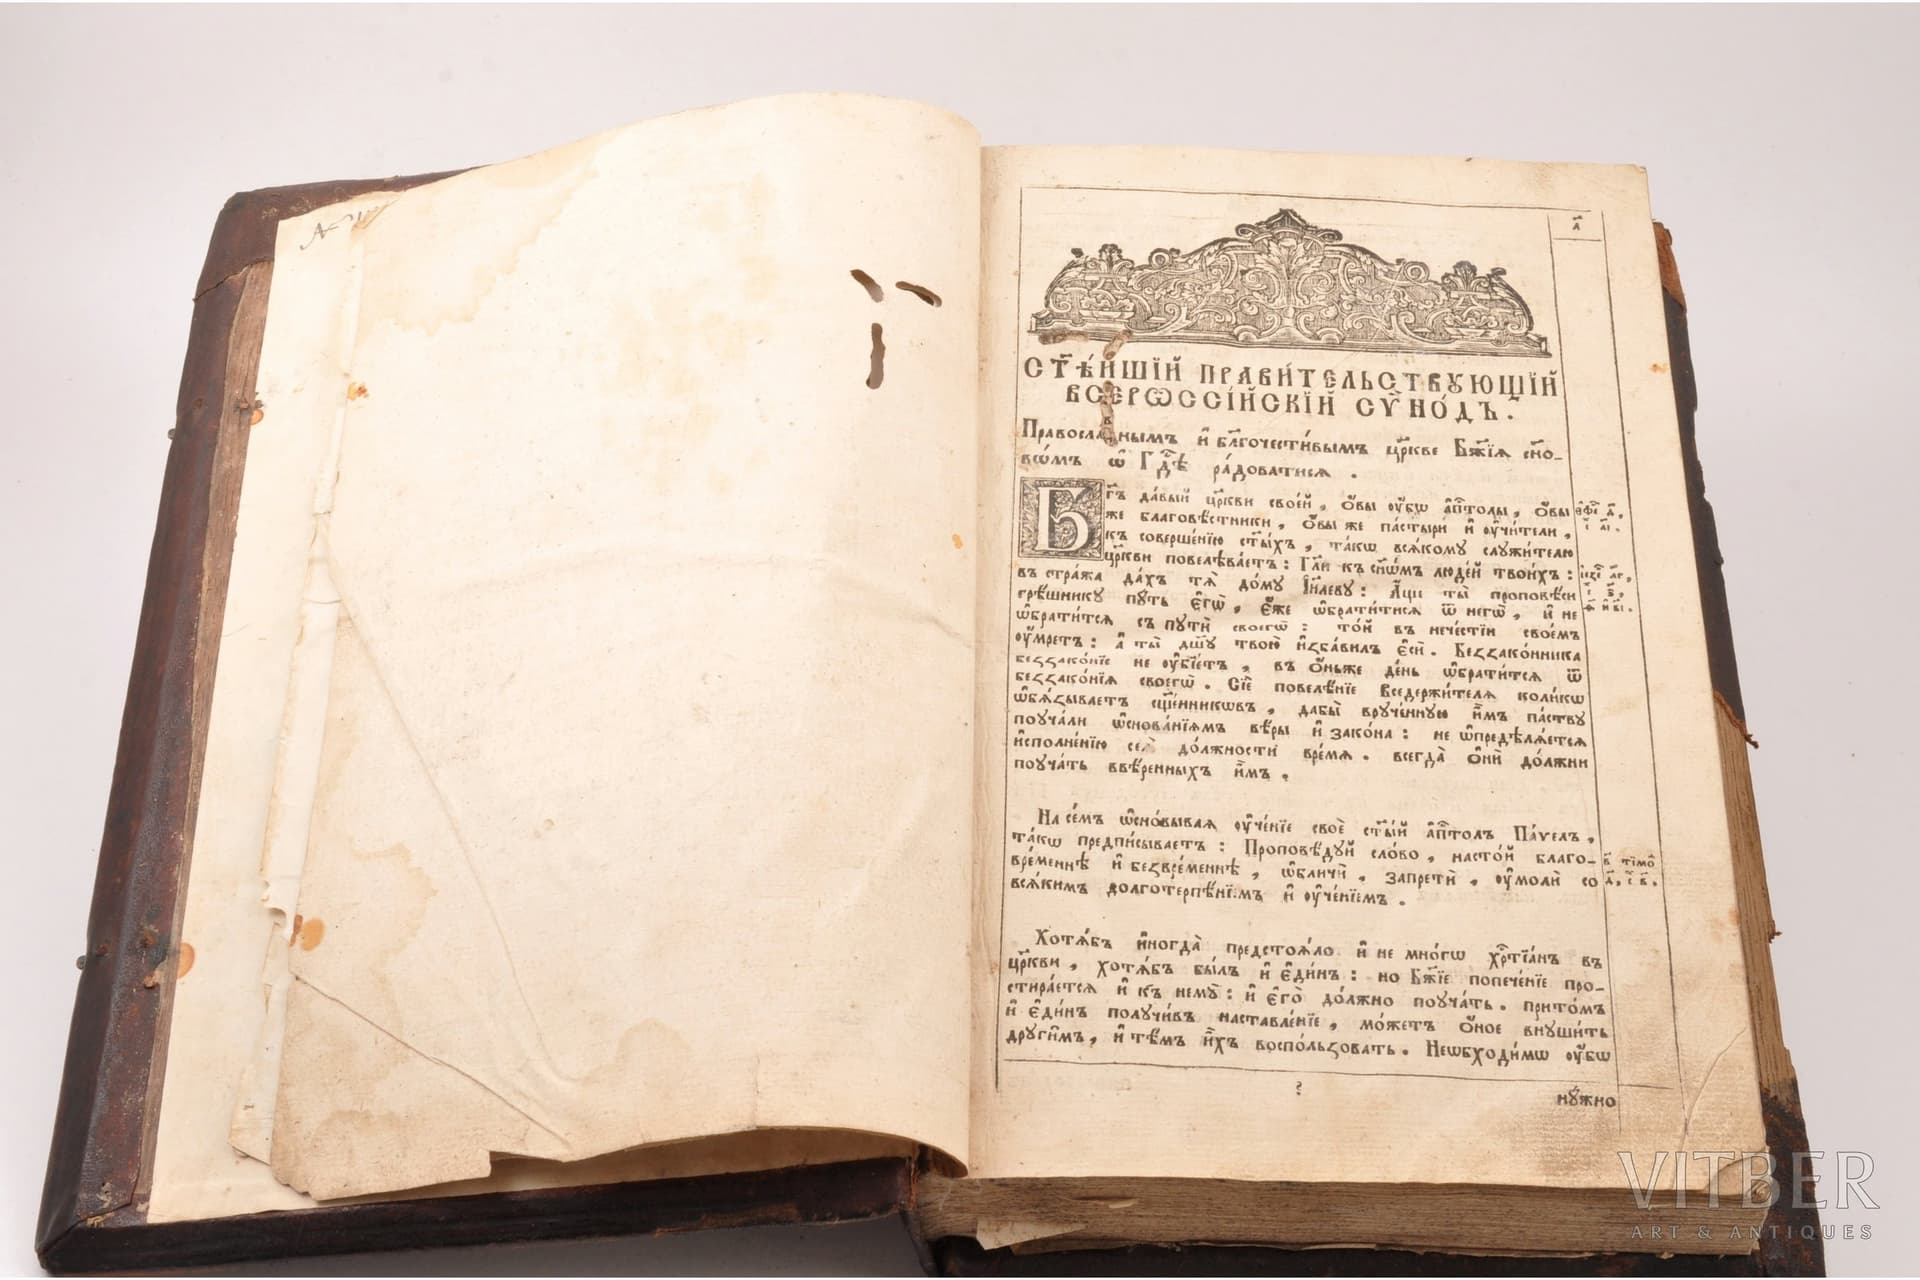 а҃
СТ҃Ѣ́ЙШІЙ ПРАВИ́ТЕЛЬСТВꙊЮЩІЙ
ВСЕРѠССІ́ЙСКІЙ СѴ҆НО́ДЪ.
Правосла́внымъ и҆ бл҃гочести́вымъ цр҃кве Бж҃їѧ сн҃о-
вѡ́мъ ѡ҆ Гд҇ѣ ра́доватисѧ .
Бг҃ъ да́вый цр҃кви свое́й , ѻ҆́вы ᲂу҆́бѡ а҆пⷭ҇толы , ѻ҆́вы
же благовѣ́стники , ѻ҆́вы же па́стыри и҆ ᲂу҆чи́тели ,
къ соверше́нїю ст҃ы́хъ , та́кѡ всѧ́кому служи́телю
цр҃кви повелѣва́етъ : Гл҃и къ сн҃ѡ́мъ люде́й твои́хъ :
въ стра́жа да́хъ тѧ̀ до́му І҆и҃леву : А҆́ще ты̀ проповѣ́си
грѣ́шнику пꙋ́ть є҆гѡ̀ , є҆́же ѡ҆брати́тисѧ ѿ негѡ̀ , и҆ не
ѡ҆брати́тсѧ съ пꙋтѝ своегѡ̀ : то́й въ нече́стїи свое́мъ
ᲂу҆́мретъ : а҆ ты̀ дш҃у твою̀ и҆зба́вилъ є҆сѝ . Беззако́нника
беззако́нїе не ᲂу҆бїе́тъ , въ ѻ҆́ньже де́нь ѡ҆брати́тсѧ ѿ
беззако́нїѧ своегѡ̀ . Сїѐ повелѣ́нїе Вседержи́телѧ коли́кѡ
ѡ҆бѧ́зываетъ сщ҃е́нникѡвъ , дабы̀ врꙋче́нную и҆̀мъ па́ству
поꙋча́ли ѡ҆снова́нїѧмъ вѣ́ры и҆ зако́на : не ѡ҆предѣлѧ́етсѧ
и҆сполне́нїю сеѧ̀ до́лжности вре́мѧ . всегда̀ ѻ҆нѝ до́лжни
поꙋча́ть ввѣ́ренныхъ и҆̀мъ .
На се́мъ ѡ҆сно́вываѧ ᲂу҆че́нїе своѐ ст҃ы́й а҆пⷭ҇толъ Па́ѵелъ ,
та́кѡ предпи́сываетъ : Проповѣ́дꙋй сло́во , насто́й благо-
вре́меннѣ и҆ безвре́меннѣ , ѡ҆бличѝ , запретѝ , ᲂу҆молѝ со
всѧ́кимъ долготерпѣ́нїемъ и҆ ᲂу҆че́нїемъ .
Хотѧ́бъ и҆ногда̀ предстоѧ́ло и҆ не мно́гѡ хрⷭ҇тїа́нъ въ
цр҃кви , хотѧ́бъ бы́лъ и҆ є҆ди́нъ : но Бж҃їе попече́нїе про-
стира́етсѧ и҆ къ немꙋ̀ : и҆ є҆го̀ до́лжно поꙋча́ть . прито́мъ
и҆ є҆ди́нъ полꙋчи́въ наставле́нїе , мо́жетъ ѻ҆́ное внꙋши́ть
дрꙋги̑мъ , и҆ тѣ́мъ и҆̀хъ воспо́льзовать . Неѡбходи́мѡ ᲂу҆́бѡ
нꙋ́жно
VITBER
ART & ANTIQUES